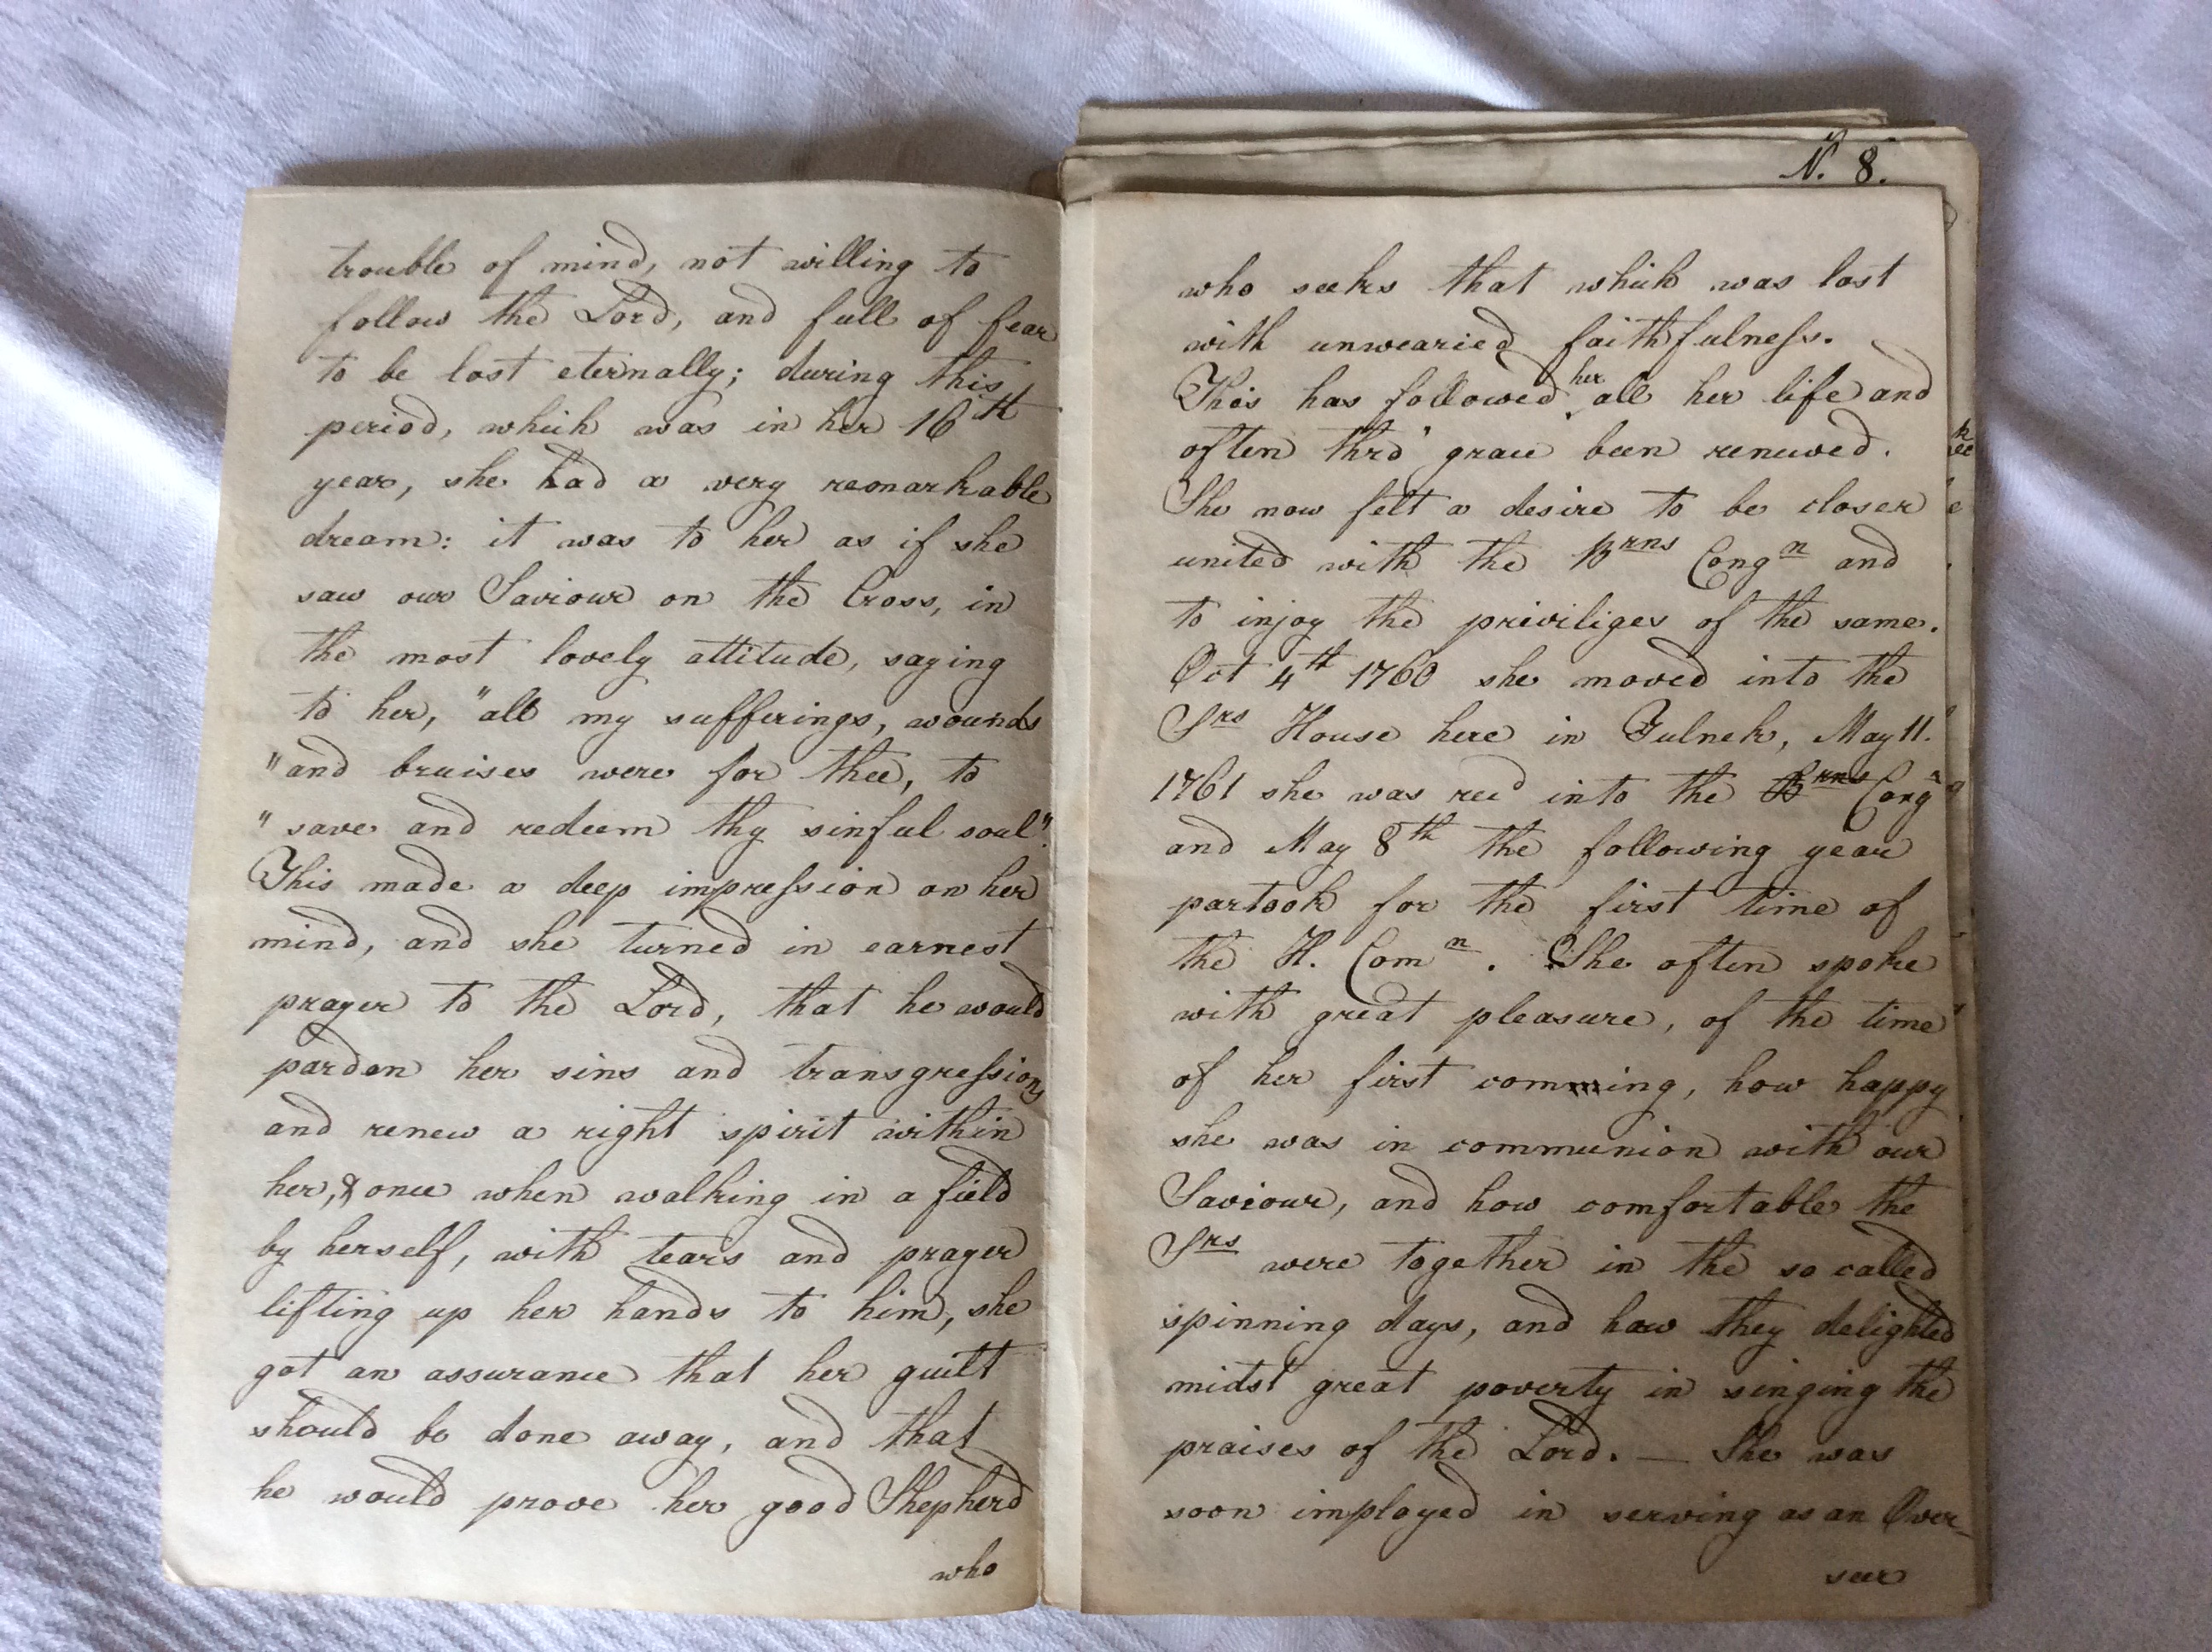 trouble of mind, not willing to
follow the Lord, and full of fear
to be lost eternally; during this
period, which was in her 16th
year, she had a very remarkable
dream: it was to her as if she
saw our Saviour on the Cross, in
the most lovely attitude, saying
to her, "all my sufferings, wounds
"and bruises were for thee, to
"save and redeem thy sinful soul".
This made a deep impreſsion on her
mind, and she turned in earnest
prayer to the Lord, that he would
pardon her sins and transgreſsions
and renew a right spirit within
her, & once when walking in a field
by herself, with tears and prayer
lifting up her hands to him, she
got an assurance that her guilt
should be done away, and that
he would prove her good Shepherd
who
N. 8.
who seeks that which was lost
with unwearied faithfulneſs.
This has followed her all her life and
often thro' grace been renewed.
She now felt a desire to be closer
united with the Brns Congn and
to injoy the priviliges of the same.
Oct 4th 1760 she moved into the
Srs House here in Fulnek, May 11.
1761 she was recd into the Brns Congn
and May 8th the following year
partook for the first time of
the H. Comn. She often spoke
with great pleasure, of the time
of her first comming, how happy
she was in communion with our
Saviour, and how comfortable the
Srs were together in the so called
spinning days, and how they delighted
midst great poverty in singing the
praises of the Lord. — She was
soon imployed in serving as an Over-
seer